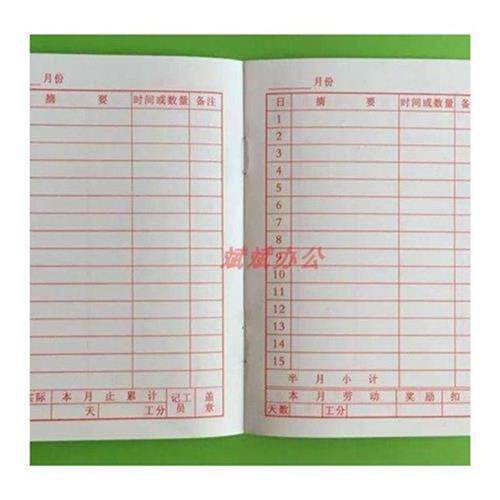 月份
摘 要 时间或数量 备注
实际 本月止累计 记工员 盖章
天 工分
月份
日 摘 要 时间或数量 备
1
2
3
4
5
6
7
8
9
10
11
12
13
14
15
半月小计
本月劳动 奖励 扣
天数 工分
斌斌办公